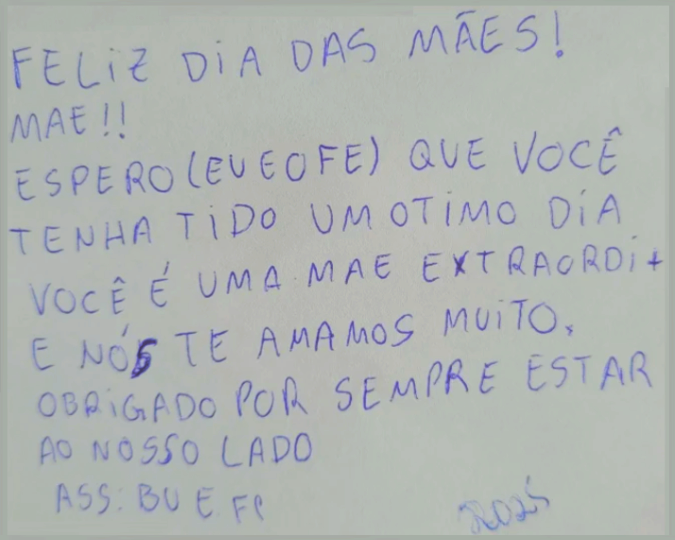 FELIZ DIA DAS MÃES!
MAE!!
ESPERO (EU E O FE) QUE VOCÊ
TENHA TIDO UM OTIMO DIA
VOCÊ É UMA MAE EXTRAORDI+
E NÓS TE AMAMOS MUITO,
OBRIGADO POR SEMPRE ESTAR
AO NOSSO LADO
ASS: BU E FE
2025